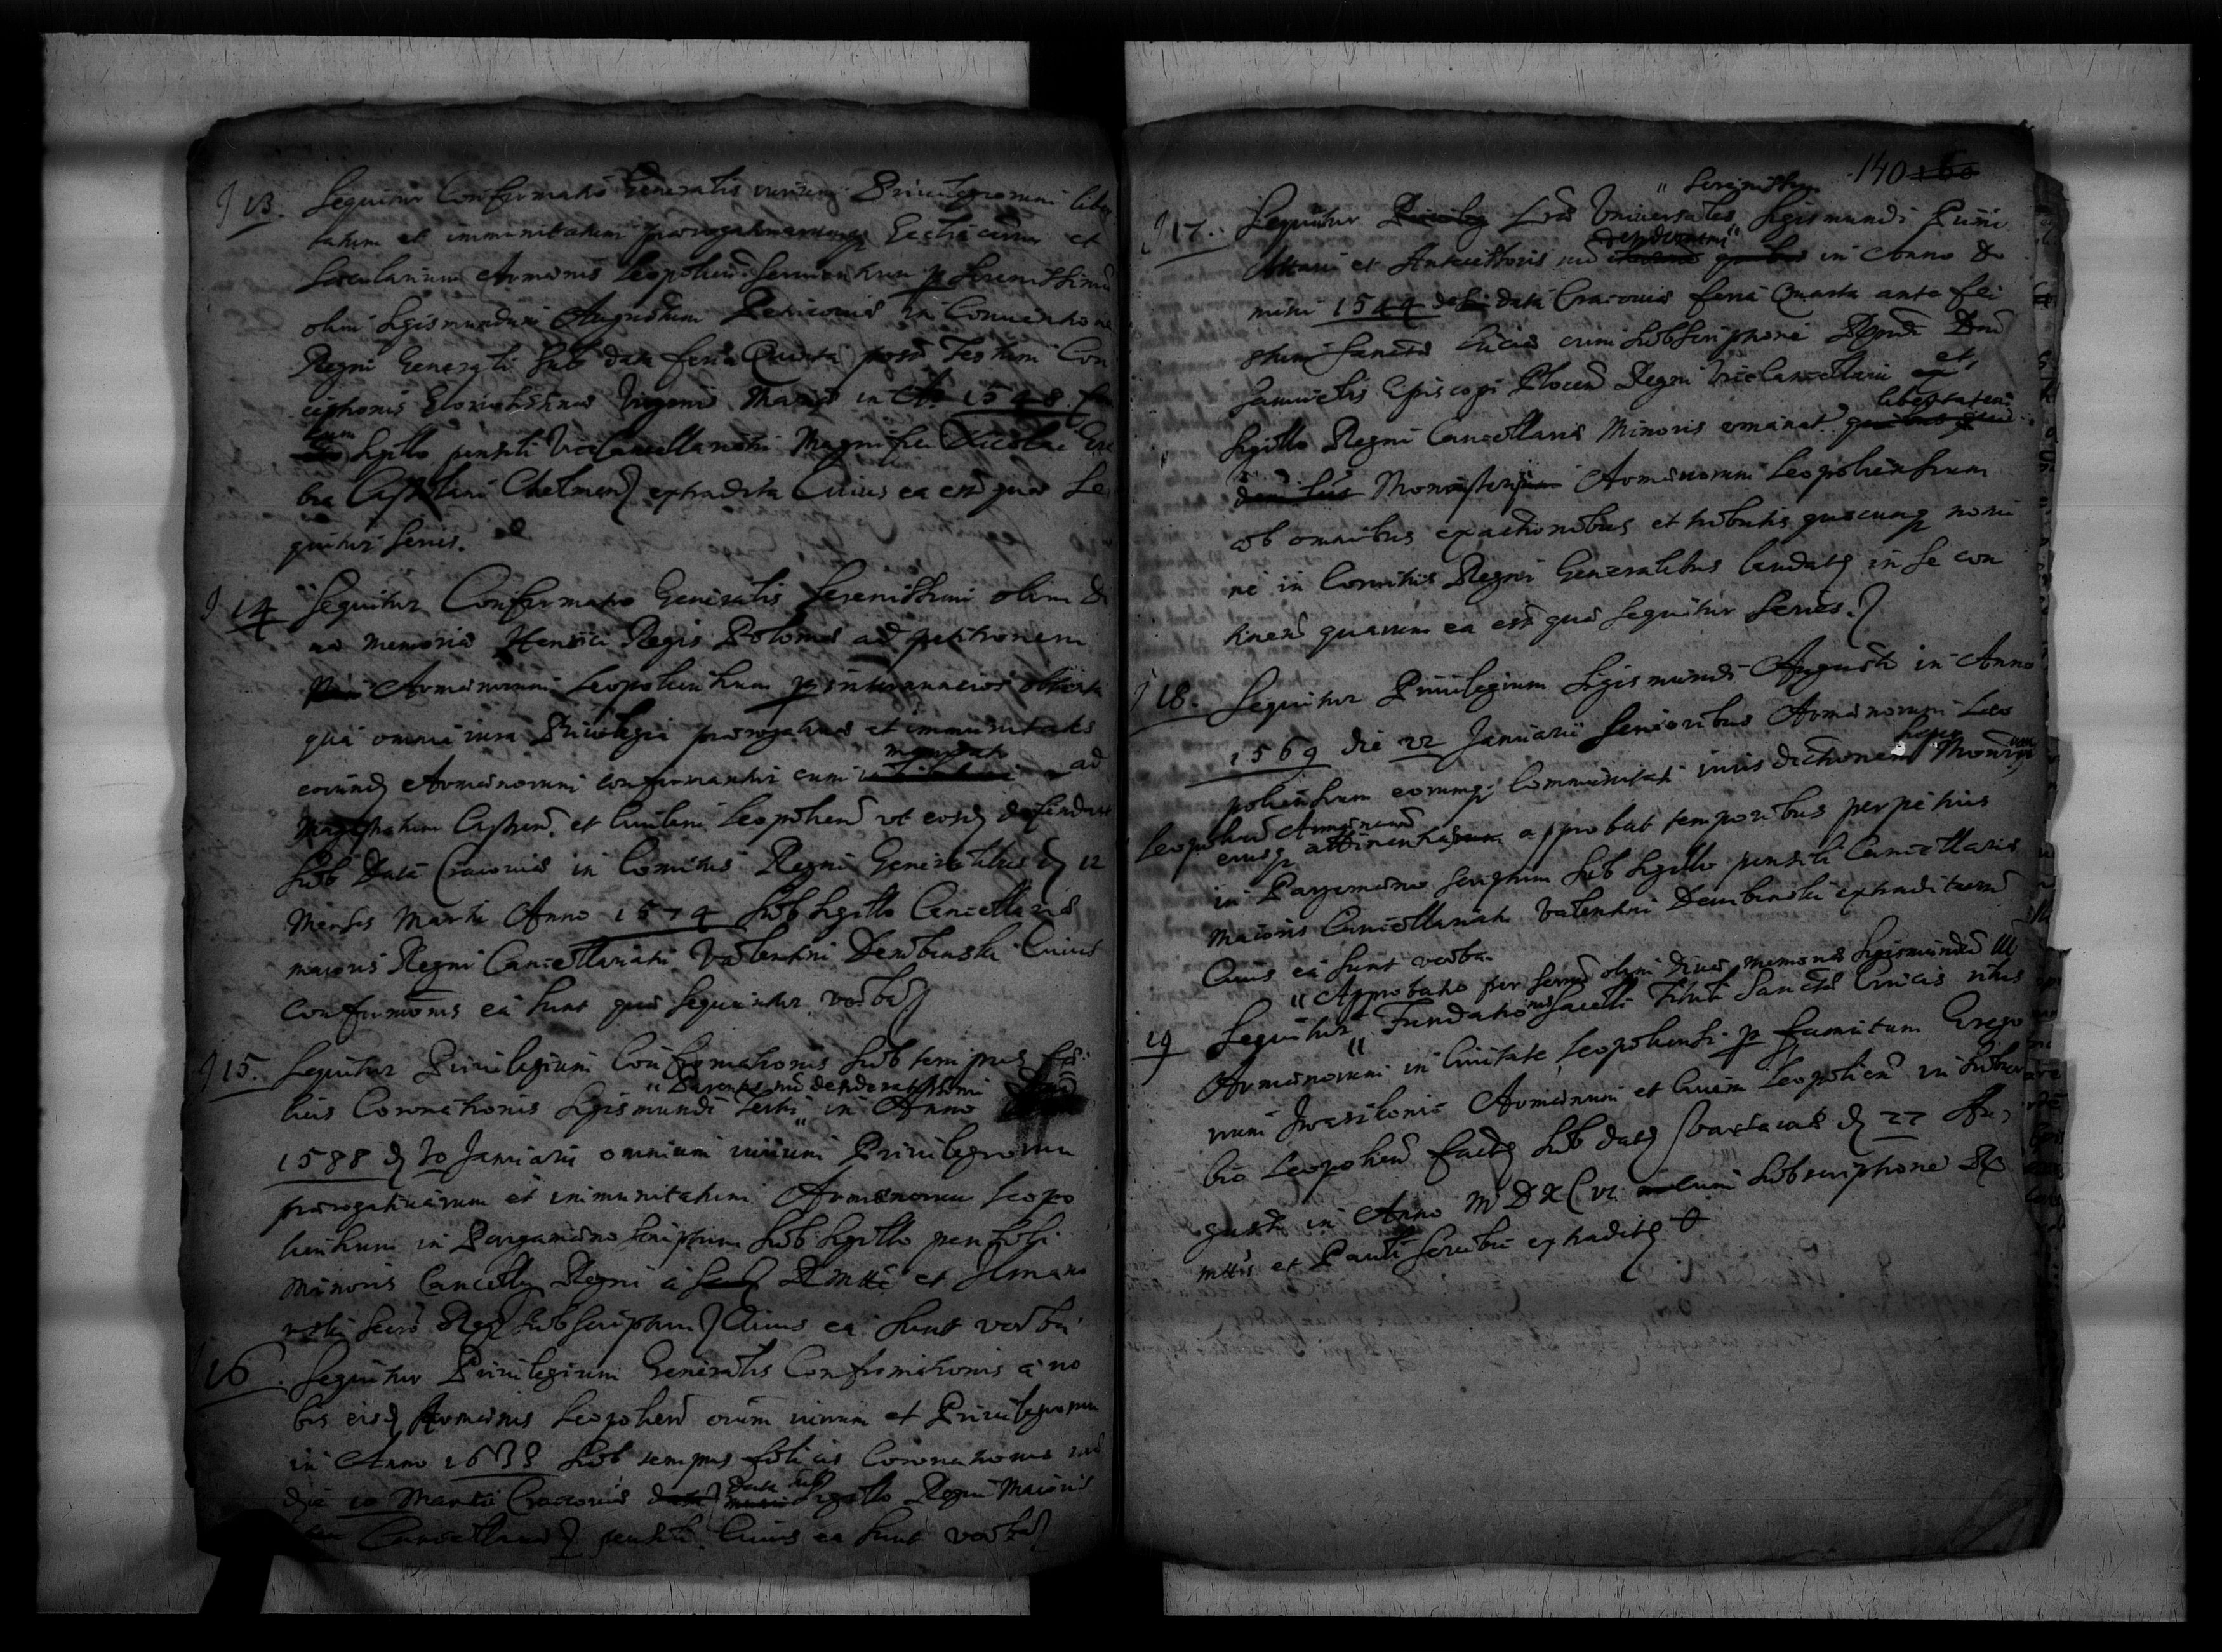 13. Sequitur Confirmatio Generalis iurium Priuilegiorum liber
tatum et immunitatum prorogatiuarumq Ecclesiarum et
Secularium Armenis Leopolien seruientium p Serenissimum
olim Sigismundum Augustum Petricouiæ in Conuentione
Regni Generali sub data feria Quinta post festum Con
ceptionis Gloriosissimæ Virginis Mariæ in Ao 1548
Sigillo pensili Vicecancellariatu Magnifici Nicolai Gra
bia Castellani Chelmen extradita Cuius ea est quæ Se
quitur Series.
14 Sequitur Confirmatio Generalis Serenissimi olim Di
uæ memoriæ Henrici Regis Poloniæ ad petitionem
Armenorum Leopoliensium p internuncios oblata
qua omnia iura Priuilegia prorogatiuas et immunitates
eorund Armenorum confirmantur cum mandato ad
Magistratum Castren. et Ciuilem Leopolien ut eosd defendant
Sub Data Cracouiæ in Comitiis Regni Generalibus d 12
Mensis Martii Anno 1574 sub Sigillo Cancellariæ
maioris Regni Cancellariatu Valentini Dembinski Cuius
confirmonis ea sunt quæ sequuntur verba
15. Sequitur Priuilegium Confirmationis sub tempus fæ
licis Coronationis Sigismundi Tertii " Parentis nri desideratissimi " in Anno
1588 d 30 Januarii omnium iurium Priuilegiorum
prorogatiuarum et immunitatum Armenorum Leopo
liensium in Pargameno scriptum sub Sigillo pensili
minoris Cancellæ Regni a R Mtte et
Secrō Reg subscriptum Cuius ea sunt verba
16. Sequitur Priuilegium Generalis Confirmationis a no
bis eisd Armenis Leopolien oium iurium et Priuilegiorum
in Anno 1633 sub tempus fælicis Coronationis nræ
die 10 Martii Cracouiæ data sub Sigillo Regni Maioris
Cancellariæ pensili. Cuius ea sunt verba
140 160
17. Sequitur Priuileg Lræ Vniuersales " Serenissimi Sigismundi Primi
Attaui et Antecessoris nri desideratmi " in Anno Do
mini 1544 data Cracouiæ feria Quarta ante fe
stum Sanctæ Luciæ cum subscriptione Rndi Dni
Samuelis Episcopi Plocen Regni Vicecancellarii et
Sigillo Regni Cancellariæ Minoris emanat. libertatem
Monasterium Armenorum Leopoliensium
ab omnibus exactionibus et tributis quocunq nomi
ne in Comitiis Regni Generalibus laudatis in se con
tinen quarum ea est quæ sequitur Series.
18. Sequitur Priuilegium Sigismundi Augusti in Anno
1569 die 22 Januarii Senioribus Armenorum Leo
poliensium eorumq Communitati iurisdictionem supra Monrium
Leopolien Armenorum
eiusq attinentias approbat temporibus perpetuis
in Pargameno scriptum sub sigillo pensili Cancellariæ
maioris Cancellariatu Valentini Dembinski extraditum
Cuius ea sunt verba.
" Approbatio per Sermū olim Diuæ memoriæ Sigismundū III
19 Sequitur " Fundationis Sacelli Tituli Sanctæ Crucis ritus
Armenorum in Ciuitate Leopoliensi p famatum Grego
rium Iwaszkowic Armenum et Ciuem Leopolien in Subur
bio Leopolien factæ sub datæ Varsauiæ d 22 Au
gusti in Anno MDXCVI cum subscriptione R
Mttis et Pauli Scerbic extraditæ